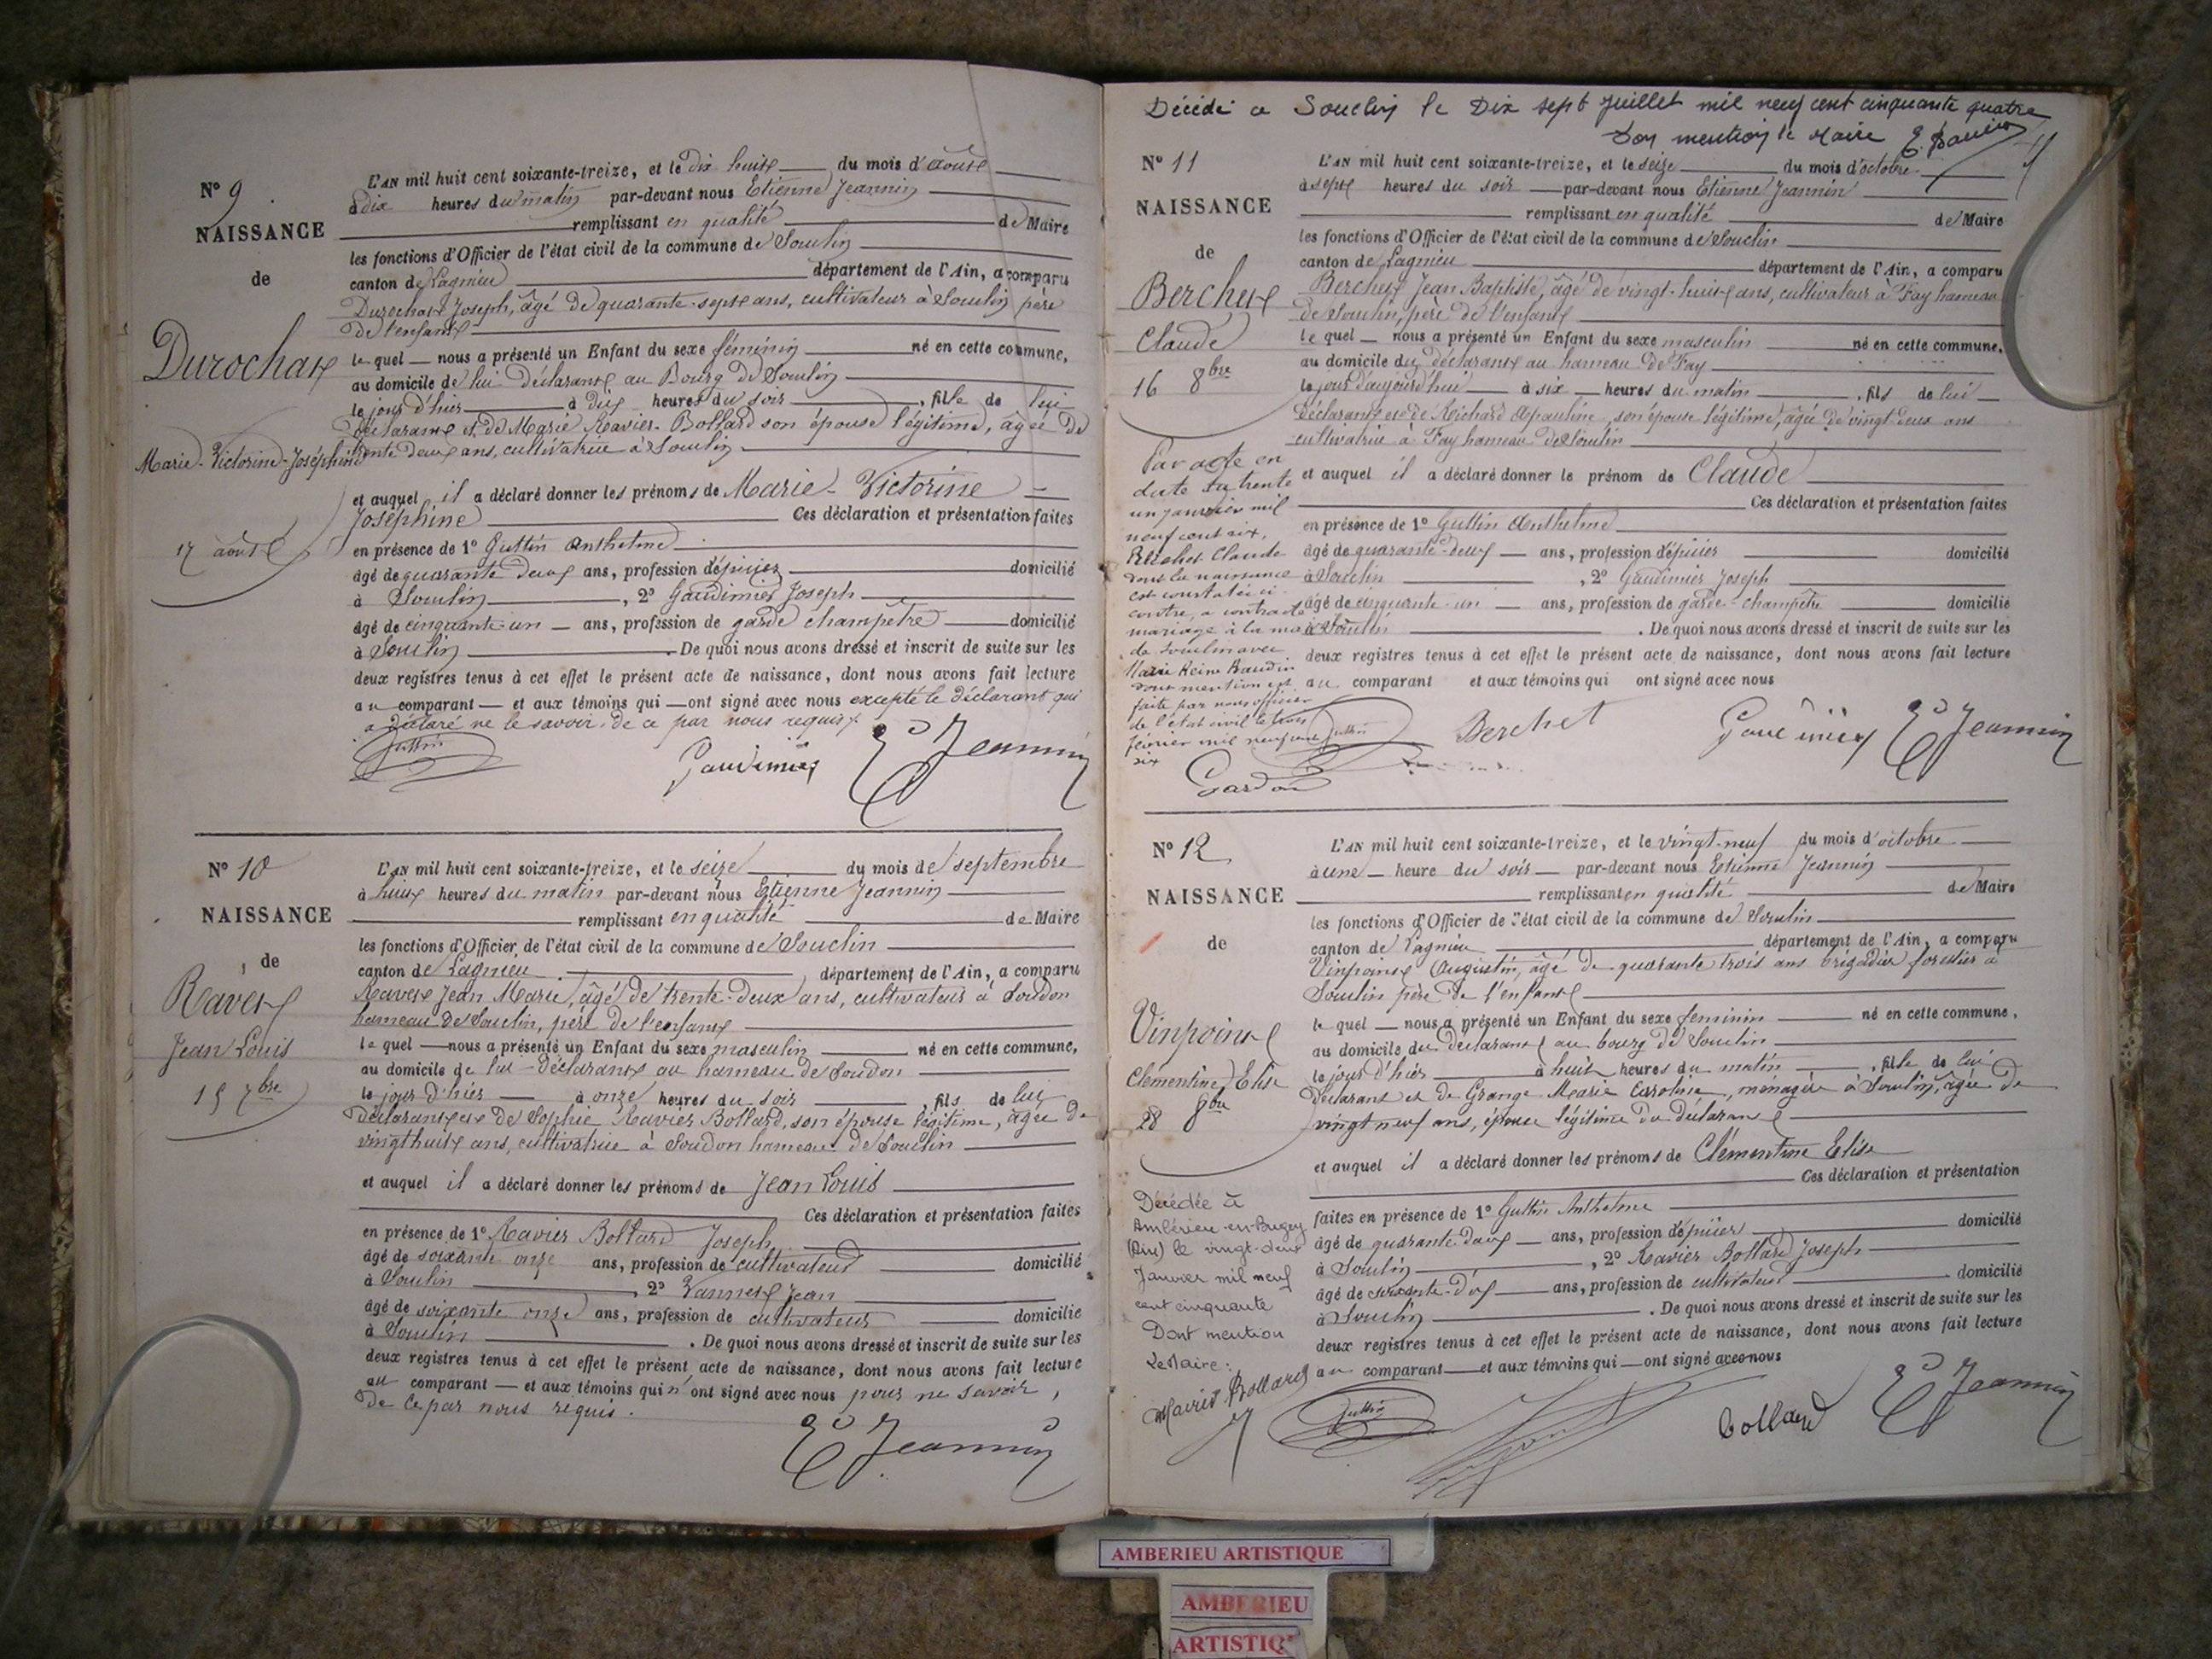 N° 9
NAISSANCE
de
Durochat
Marie-Victorine-Joséphine
17 août
L'AN mil huit cent soixante-treize, et le dix huit du mois d'août
à dix heures du matin par-devant nous Etienne Jeannin
remplissant en qualité de Maire
les fonctions d'Officier de l'état civil de la commune de Souclin
canton de Lagnieu département de l'Ain, a comparu
Durochat Joseph, âgé de quarante-sept ans, cultivateur à Souclin père
de l'enfant
le quel nous a présenté un Enfant du sexe féminin né en cette commune,
au domicile de lui déclarant au Bourg de Souclin
le jour d'hier à dix heures du soir, fille de lui
déclarant et de Marie Ravier-Bollard son épouse légitime, âgée de
trente deux ans, cultivatrice à Souclin
et auquel il a déclaré donner les prénoms de Marie-Victorine
Joséphine Ces déclaration et présentation faites
en présence de 1° Guttin Anthelme
âgé de quarante deux ans, profession d'épicier domicilié
à Souclin, 2° Gaudimier Joseph
âgé de cinquante-un ans, profession de garde champêtre domicilié
à Souclin. De quoi nous avons dressé et inscrit de suite sur les
deux registres tenus à cet effet le présent acte de naissance, dont nous avons fait lecture
au comparant et aux témoins qui ont signé avec nous excepté le déclarant qui
a déclaré ne le savoir de ce par nous requis.
Guttin Gaudimier E Jeannin
N° 10
NAISSANCE
de
Ravet
Jean Louis
15 7bre
L'AN mil huit cent soixante-treize, et le seize du mois de septembre
à huit heures du matin par-devant nous Etienne Jeannin
remplissant en qualité de Maire
les fonctions d'Officier de l'état civil de la commune de Souclin
canton de Lagnieu département de l'Ain, a comparu
Ravet Jean Marie, âgé de trente-deux ans, cultivateur à Soudon
hameau de Souclin, père de l'enfant
le quel nous a présenté un Enfant du sexe masculin né en cette commune,
au domicile de lui-déclarant au hameau de Soudon
le jour d'hier à onze heures du soir, fils de lui
déclarant et de Sophie Ravier Bollard, son épouse légitime, âgée de
vingt huit ans, cultivatrice à Soudon hameau de Souclin
et auquel il a déclaré donner les prénoms de Jean Louis
Ces déclaration et présentation faites
en présence de 1° Ravier Bollard Joseph
âgé de soixante onze ans, profession de cultivateur domicilié
à Souclin, 2° Vannet Jean
âgé de soixante onze ans, profession de cultivateur domicilié
à Souclin. De quoi nous avons dressé et inscrit de suite sur les
deux registres tenus à cet effet le présent acte de naissance, dont nous avons fait lecture
au comparant et aux témoins qui n'ont signé avec nous pour ne savoir,
de ce par nous requis.
E Jeannin
Décédé a Souclin le Dix sept Juillet mil neuf cent cinquante quatre
Don mention le Maire
N° 11
NAISSANCE
de
Berchet
Claude
16 8bre
Par acte en
date du trente
un janvier mil
neuf cent six,
Berchet Claude
dont la naissance
est constatée ci
contre, a contracté
mariage à la mairie
de Souclin avec
Marie Reine Baudin
dont mention est
faite par nous officier
de l'état civil le trois
février mil neuf cent
six
Gardon
L'AN mil huit cent soixante-treize, et le seize du mois d'octobre
à sept heures du soir par-devant nous Etienne Jeannin
remplissant en qualité de Maire
les fonctions d'Officier de l'état civil de la commune de Souclin
canton de Lagnieu département de l'Ain, a comparu
Berchet Jean Baptiste, âgé de vingt-huit ans, cultivateur à Fay hameau
de Souclin, père de l'enfant
le quel nous a présenté un Enfant du sexe masculin né en cette commune,
au domicile du déclarant au hameau de Fay
le jour d'aujourd'hui à six heures du matin, fils de lui
déclarant et de Richard Apauline, son épouse légitime, âgée de vingt-deux ans
cultivatrice à Fay hameau de Souclin
et auquel il a déclaré donner le prénom de Claude
Ces déclaration et présentation faites
en présence de 1° Guttin Anthelme
âgé de quarante-deux ans, profession d'épicier domicilié
à Souclin, 2° Gaudimier Joseph
âgé de cinquante-un ans, profession de garde-champêtre domicilié
à Souclin. De quoi nous avons dressé et inscrit de suite sur les
deux registres tenus à cet effet le présent acte de naissance, dont nous avons fait lecture
au comparant et aux témoins qui ont signé avec nous
Guttin Berchet Gaudimier E Jeannin
N° 12
NAISSANCE
de
Vinpoint
Clémentine Elise
28 8bre
Décédée à
Ambérieu-en-Bugey
(Ain) le vingt-deux
Janvier mil neuf
cent cinquante
Dont mention
Le Maire:
L'AN mil huit cent soixante-treize, et le vingt-neuf du mois d'octobre
à une heure du soir par-devant nous Etienne Jeannin
remplissant en qualité de Maire
les fonctions d'Officier de l'état civil de la commune de Souclin
canton de Lagnieu département de l'Ain, a comparu
Vinpoint Augustin, âgé de quarante trois ans brigadier forestier à
Souclin père de l'enfant
le quel nous a présenté un Enfant du sexe féminin né en cette commune,
au domicile du déclarant au bourg de Souclin
le jour d'hier à huit heures du matin, fille de lui
déclarant et de Grange Marie Caroline, ménagère à Souclin, âgée de
vingt neuf ans, épouse légitime du déclarant
et auquel il a déclaré donner les prénoms de Clémentine Elise
Ces déclaration et présentation
faites en présence de 1° Guttin Anthelme
âgé de quarante deux ans, profession d'épicier domicilié
à Souclin, 2° Ravier Bollard Joseph
âgé de soixante-dix ans, profession de cultivateur domicilié
à Souclin. De quoi nous avons dressé et inscrit de suite sur les
deux registres tenus à cet effet le présent acte de naissance, dont nous avons fait lecture
au comparant et aux témoins qui ont signé avec nous
Guttin Bollard E Jeannin
AMBERIEU ARTISTIQUE
AMBERIEU
ARTISTIQ